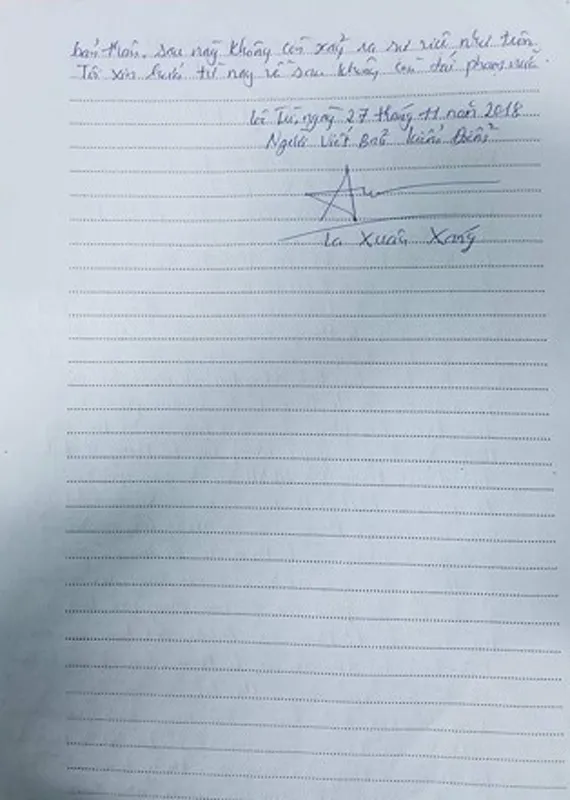 bản thân. sau này không còn xảy ra sự việc như trên.
Tôi xin hứa từ nay về sau không còn tái phạm nữa.
Tứ, ngày 27 tháng 11 năm 2018
Người viết Bản kiểm Điểm
La Xuân